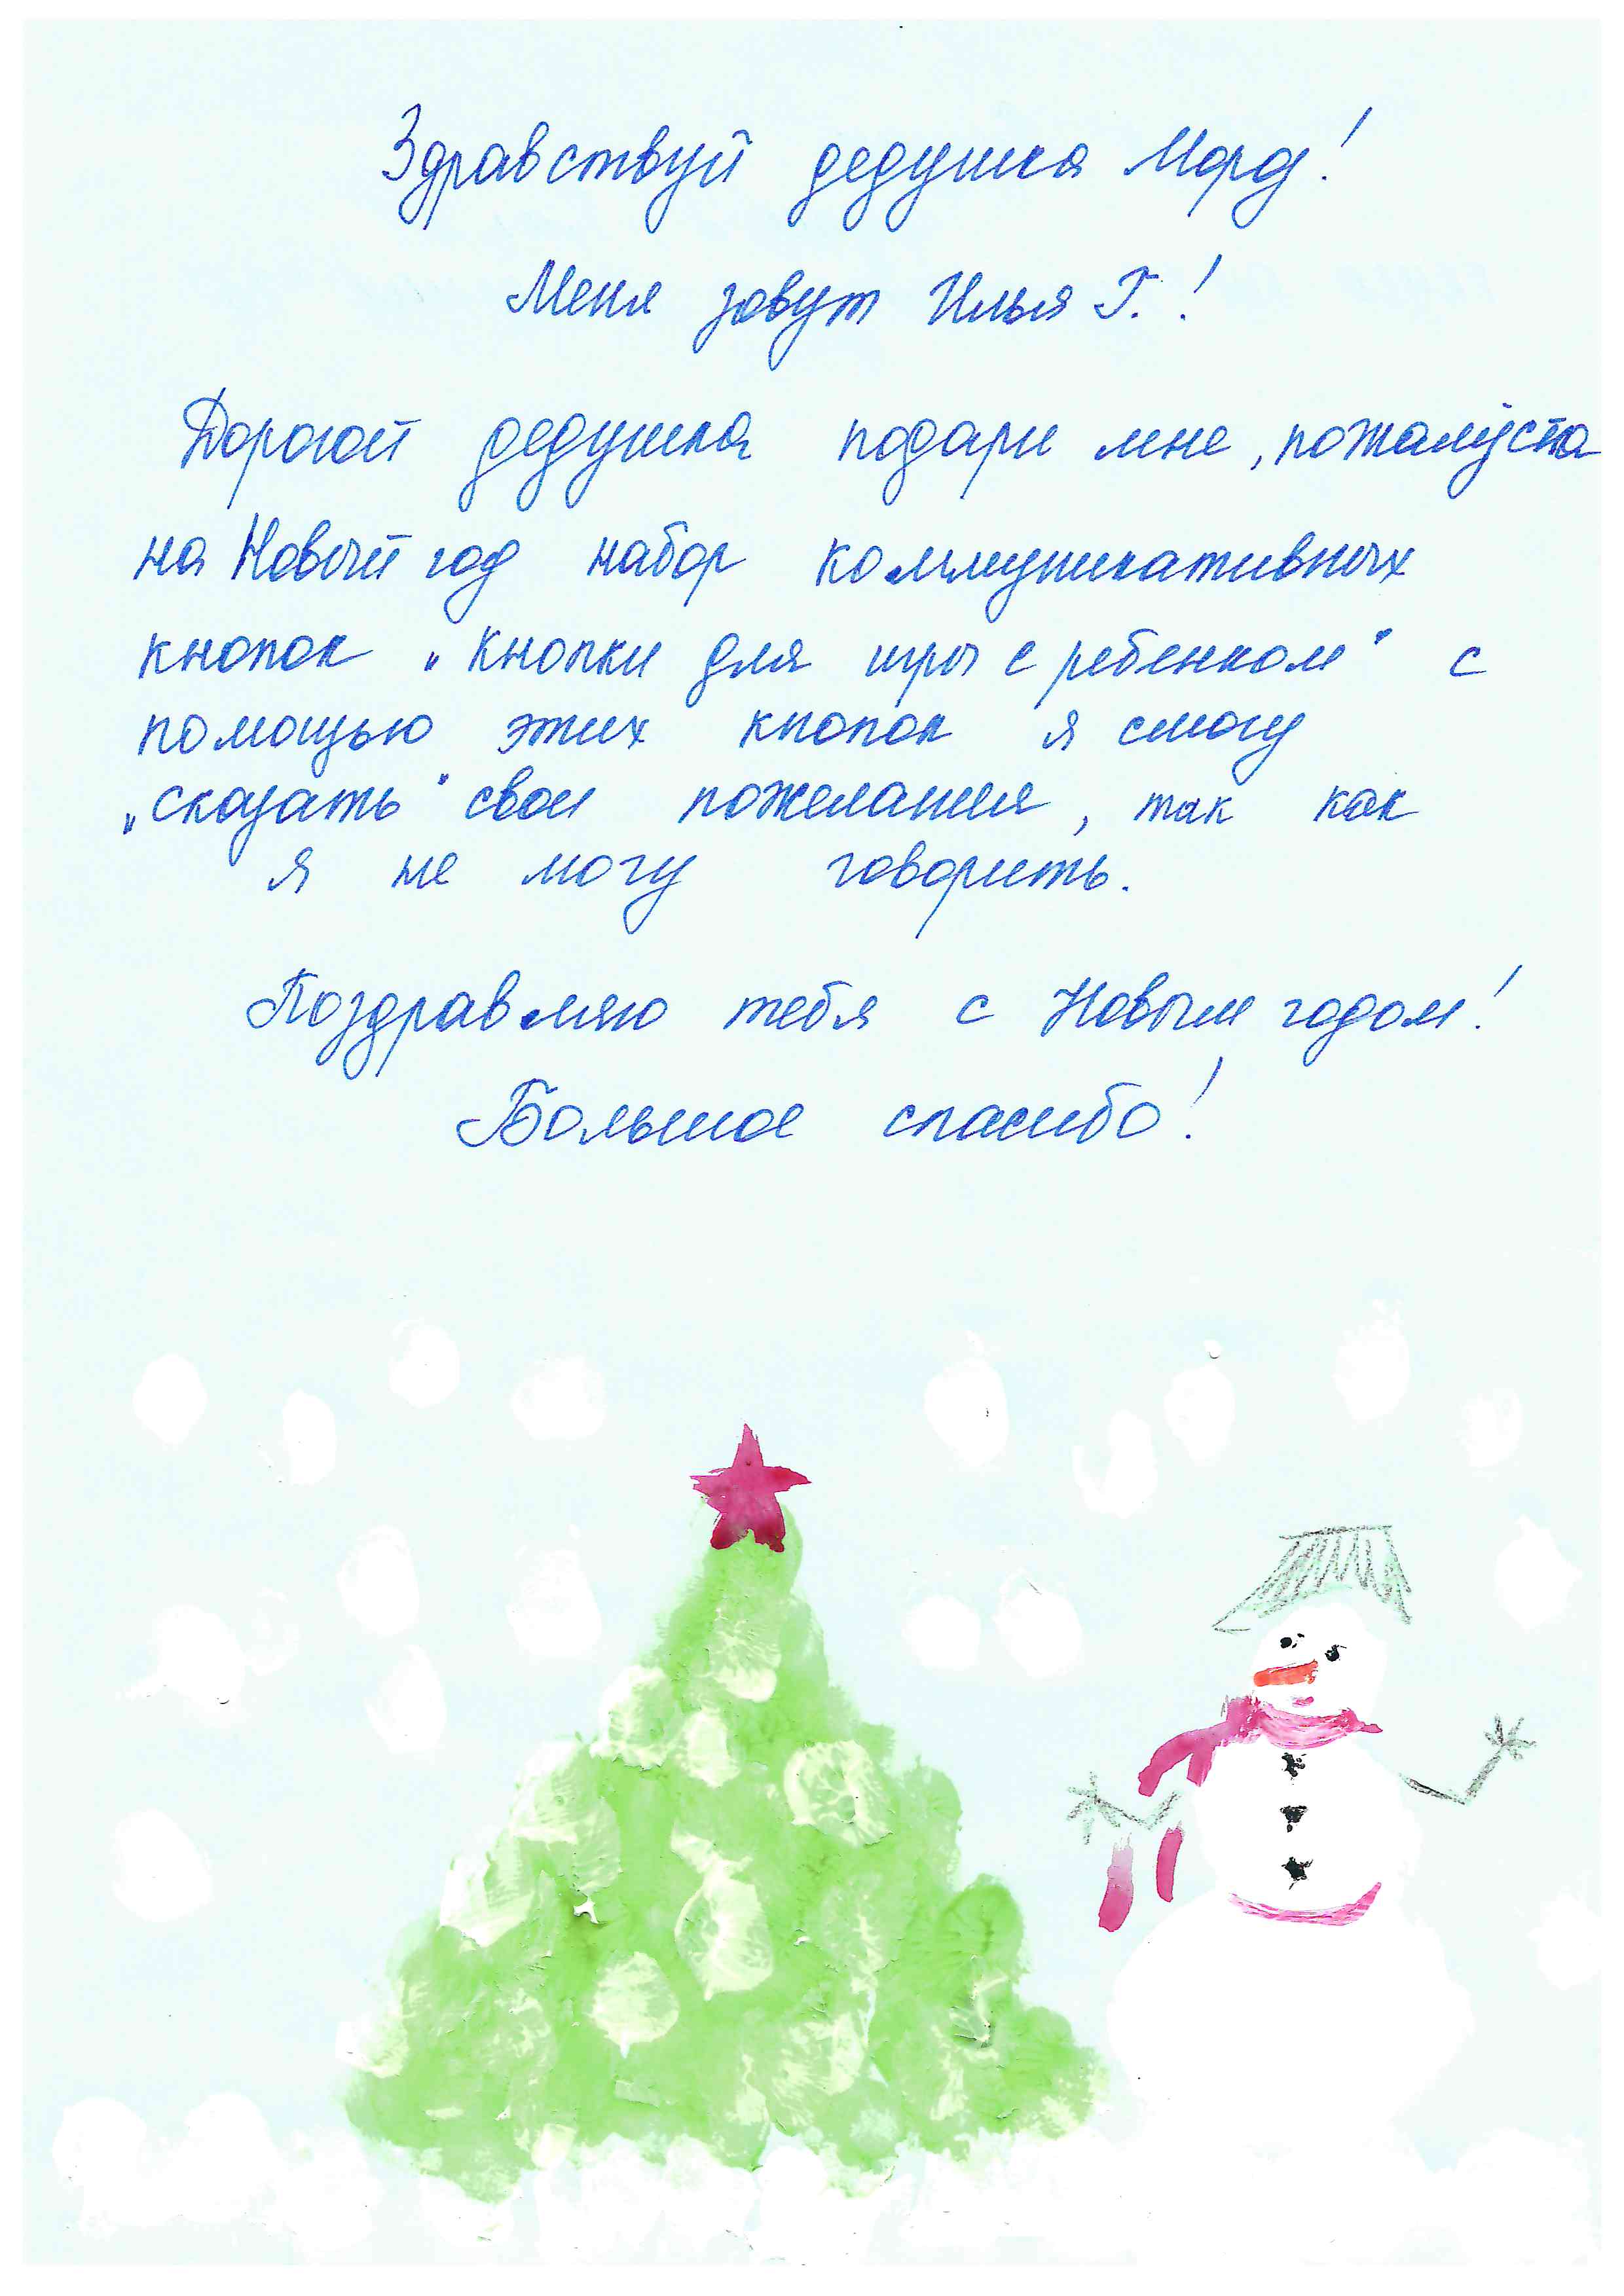 Здравствуй дедушка Мороз!
Меня зовут Илья Г.!
Дорогой дедушка подари мне, пожалуйста
на Новый год набор коммуникативных
кнопок „Кнопки для игры с ребенком" с
помощью этих кнопок я смогу
„сказать" свои пожелания, так как
я не могу говорить.
Поздравляю тебя с Новым годом!
Большое спасибо!